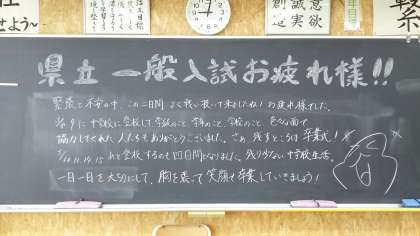 せよう～
創造
誠実
意欲
県立一般入試お疲れ様!!
緊張と不安の中、この二日間よく戦い抜いて来ましたね！お疲れ様でした。
協力してくれた人たちもありがとうございました。さぁ、残すところは卒業式！
3/10.11.14.15 あと登校するのも四日間となりました。残り少ない中学校生活、
一日一日を大切にして、胸を張って笑顔で卒業していきましょう！